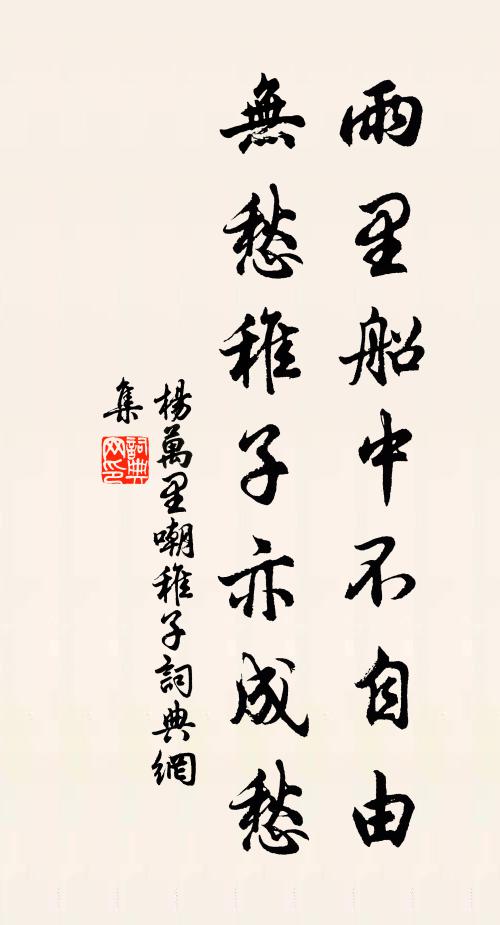 雨里船中不自由
無愁稚子亦成愁
楊萬里嘲稚子詞典網
集
詞典
网印